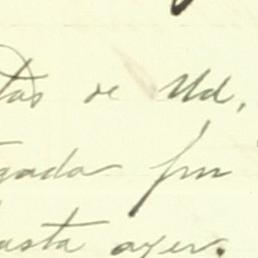 tas de Ud,
gada fin
hasta ayer.